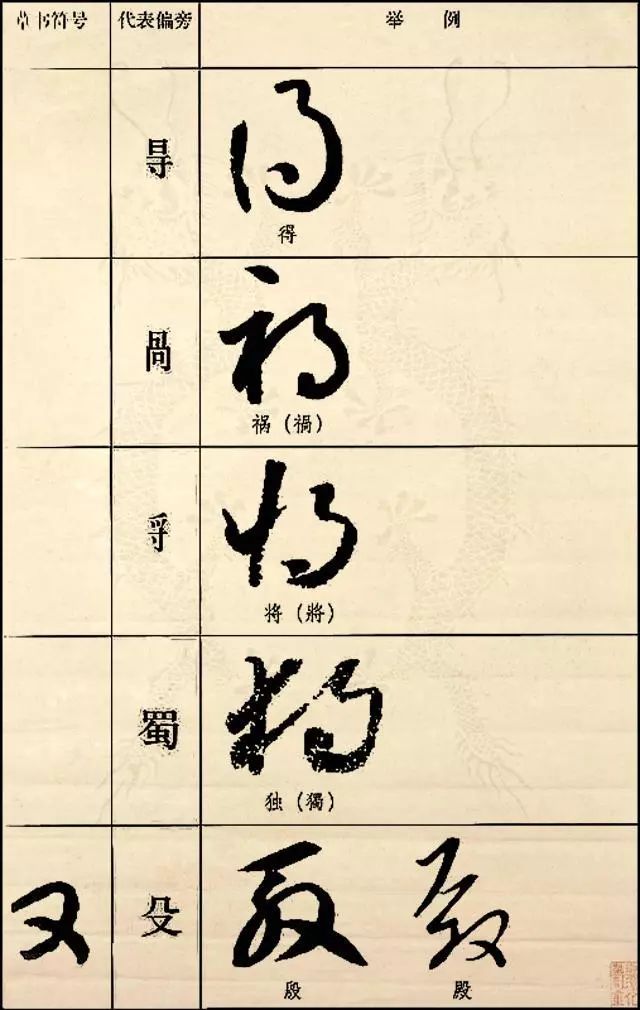 草书符号 代表偏旁 举例
㝵
得
咼
祸（禍）
将（將）
蜀
独（獨）
又 殳
殷 殿